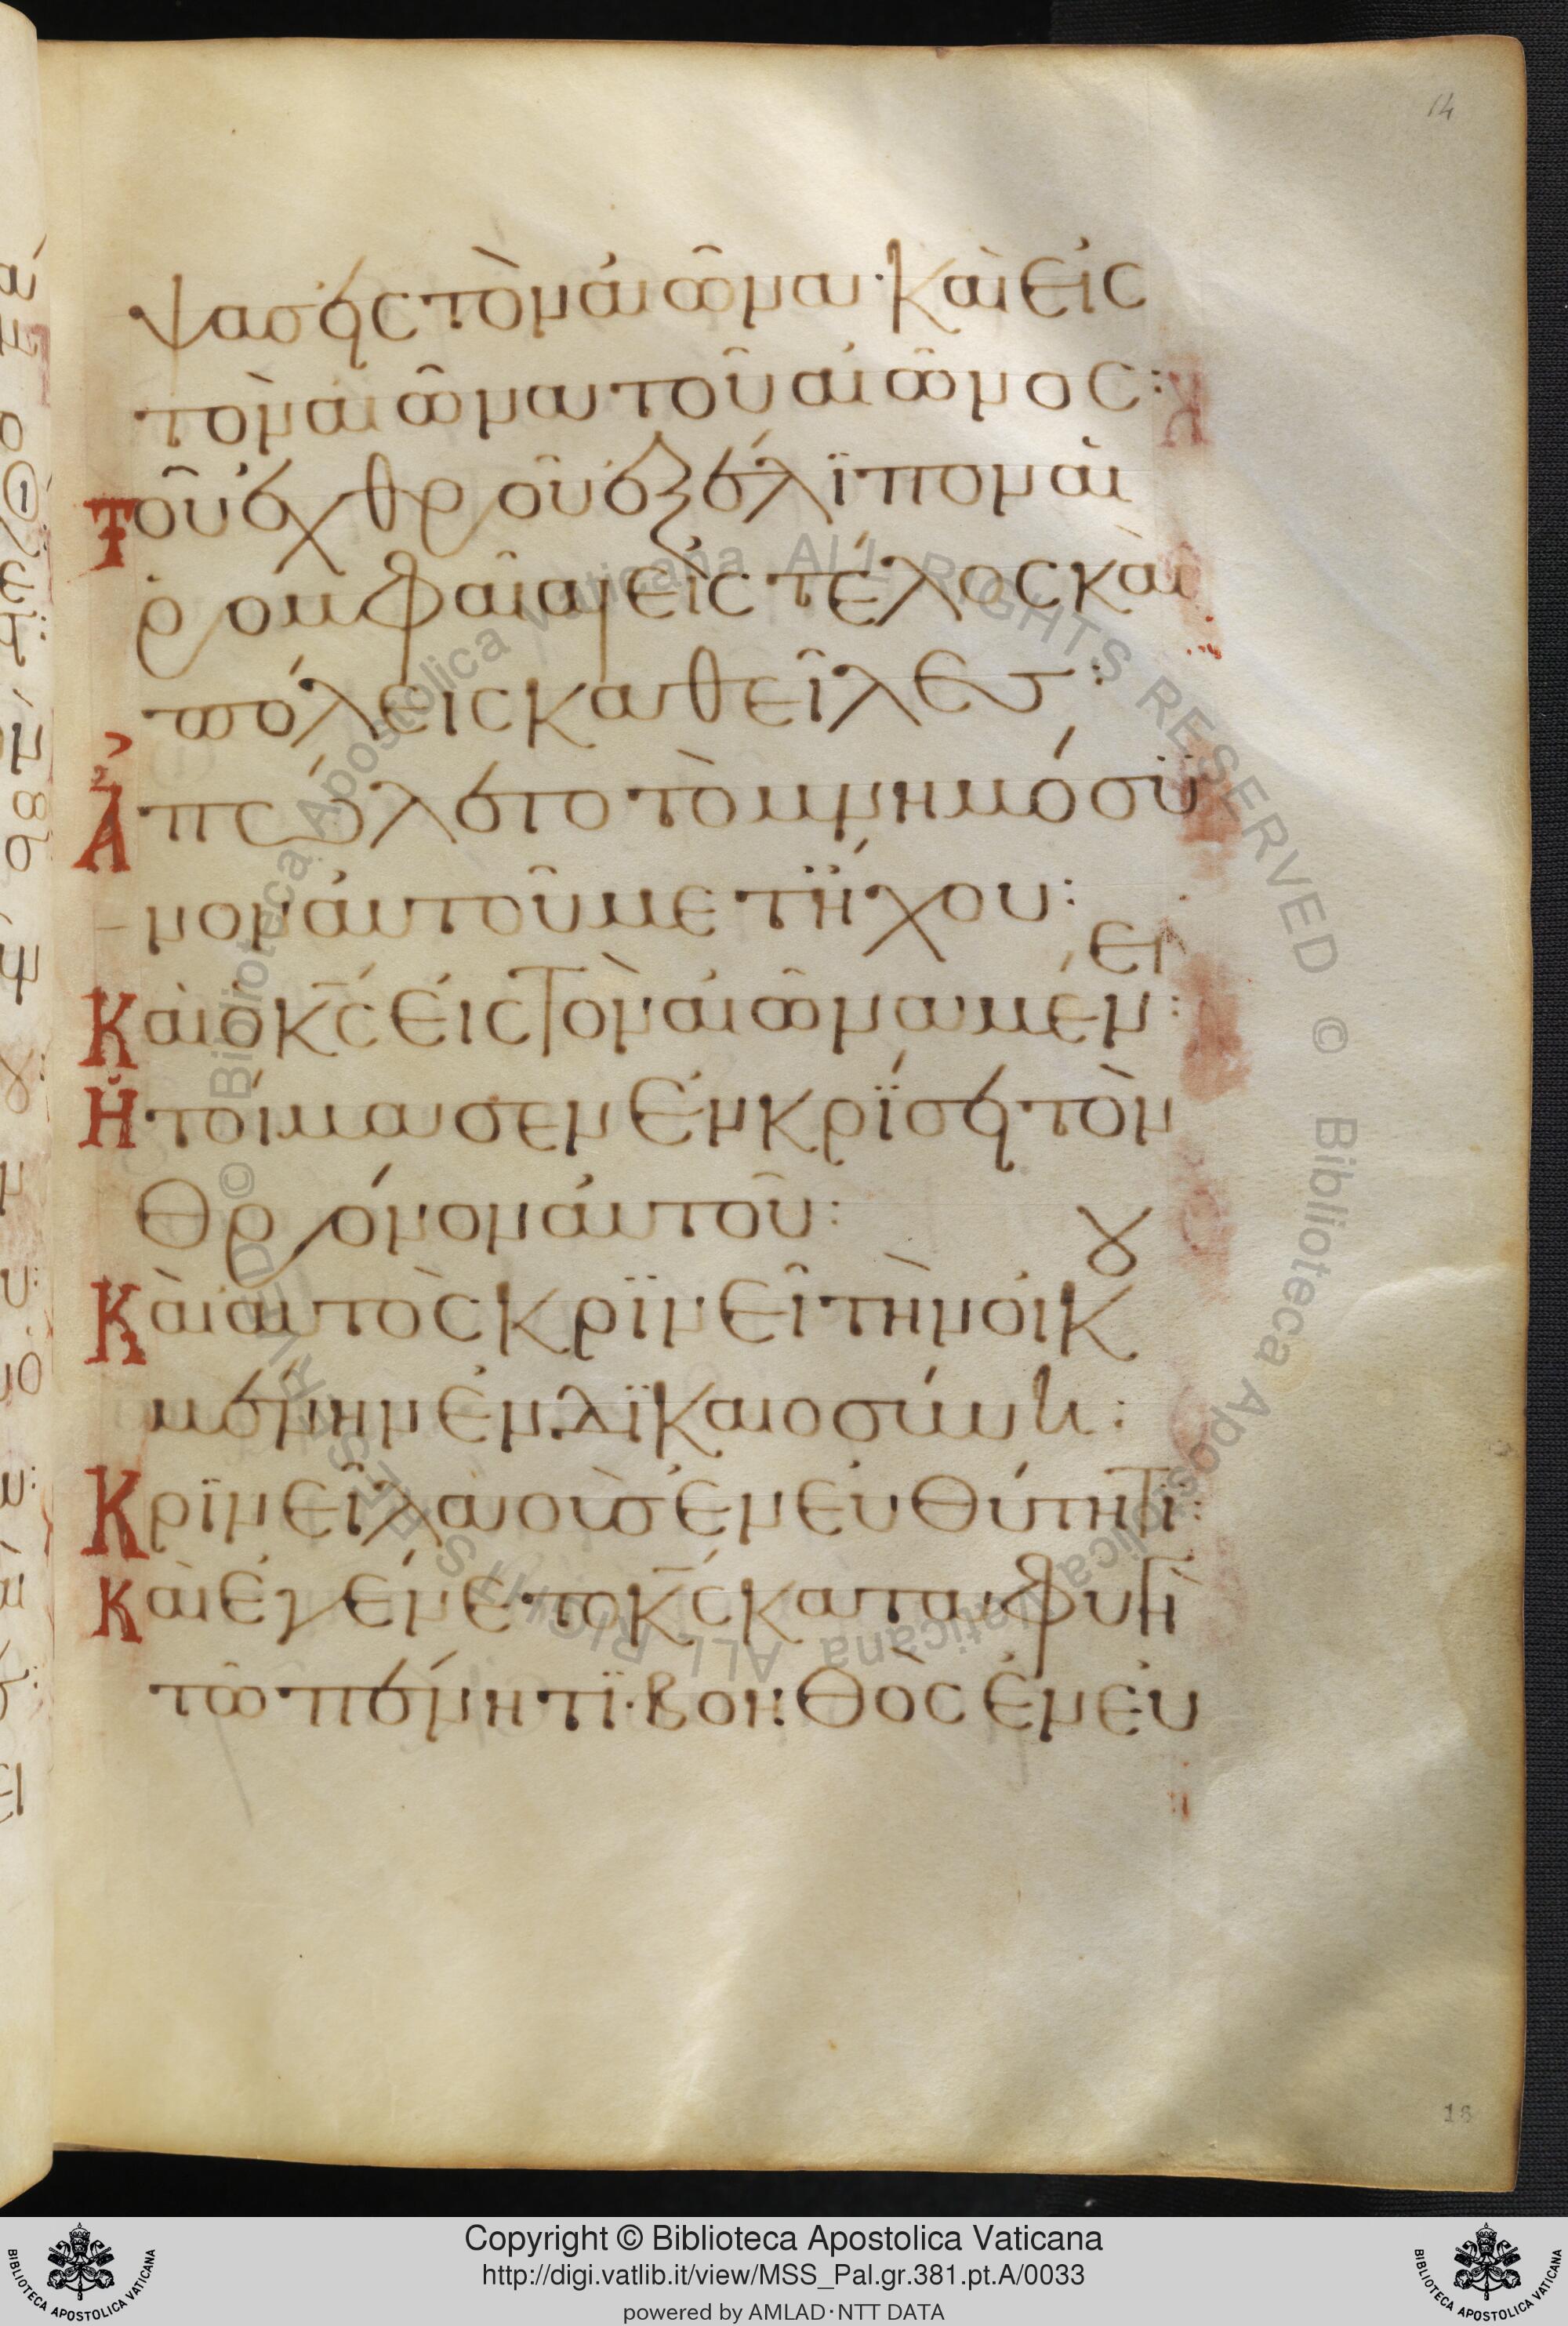 14
ψασεἰς τὸν αἰῶνα· καὶ εἰς
τὸν αἰῶνα τοῦ αἰῶνος:
Τοῦ ἐχθροῦ ἐξέλϊπον αἱ
ῥομφαῖαι εἰς τέλος καὶ
πόλεις καθεῖλες:
Ἀπώλετο τὸ μνημόσϋ
νον αὐτοῦ μετ ἤχου:
Καὶ ὁ κ̅ς̅ εἰς τὸν αἰῶνα μένει:
Ἡτοίμασεν ἐν κρίσει τὸν
θρόνον αὐτοῦ:
Καὶ αυτὸς κρϊνεῖ τὴν οἰκου
μένην ἐν δϊκαιοσύνη:
Κρϊνεῖ λαοὺς ἐν εὐθύτητϊ:
Καὶ ἐγένετο κ̅ς̅ καταφυγὴ
τῶ πένητϊ· βοηθὸς ἐν εὐ
16
Copyright © Biblioteca Apostolica Vaticana
http://digi.vatlib.it/view/MSS_Pal.gr.381.pt.A/0033
powered by AMLAD·NTT DATA